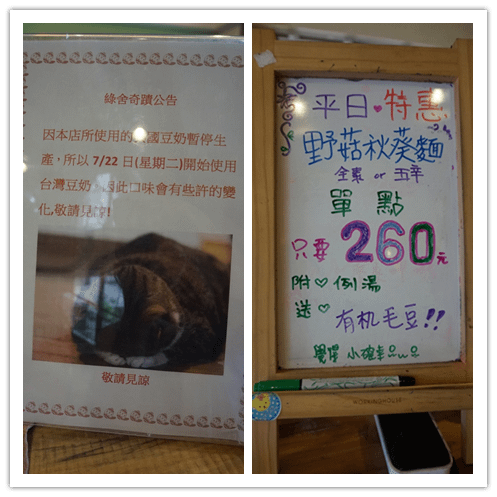 綠舍奇蹟公告
因本店所使用的 國豆奶暫停生
產，所以 7/22 日(星期二)開始使用
台灣豆奶 因此口味會有些許的變
化,敬請見諒!
敬請見諒
平日 特惠
野菇秋葵麵
全素 or 五辛
單點
只要 260元
附♡例湯
送♡ 有机毛豆!!